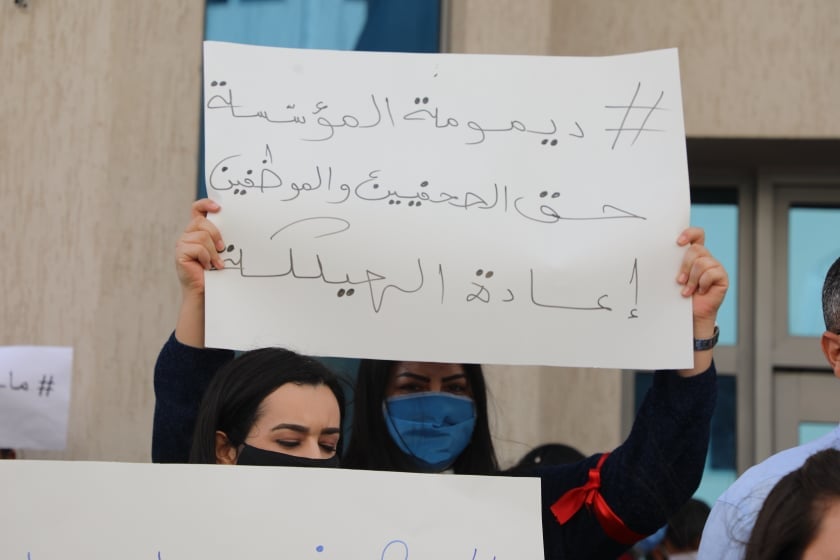 # ديمومة المؤسّسة
حق الصحفيين والموظفين
إعادة الهيكلة
# ما